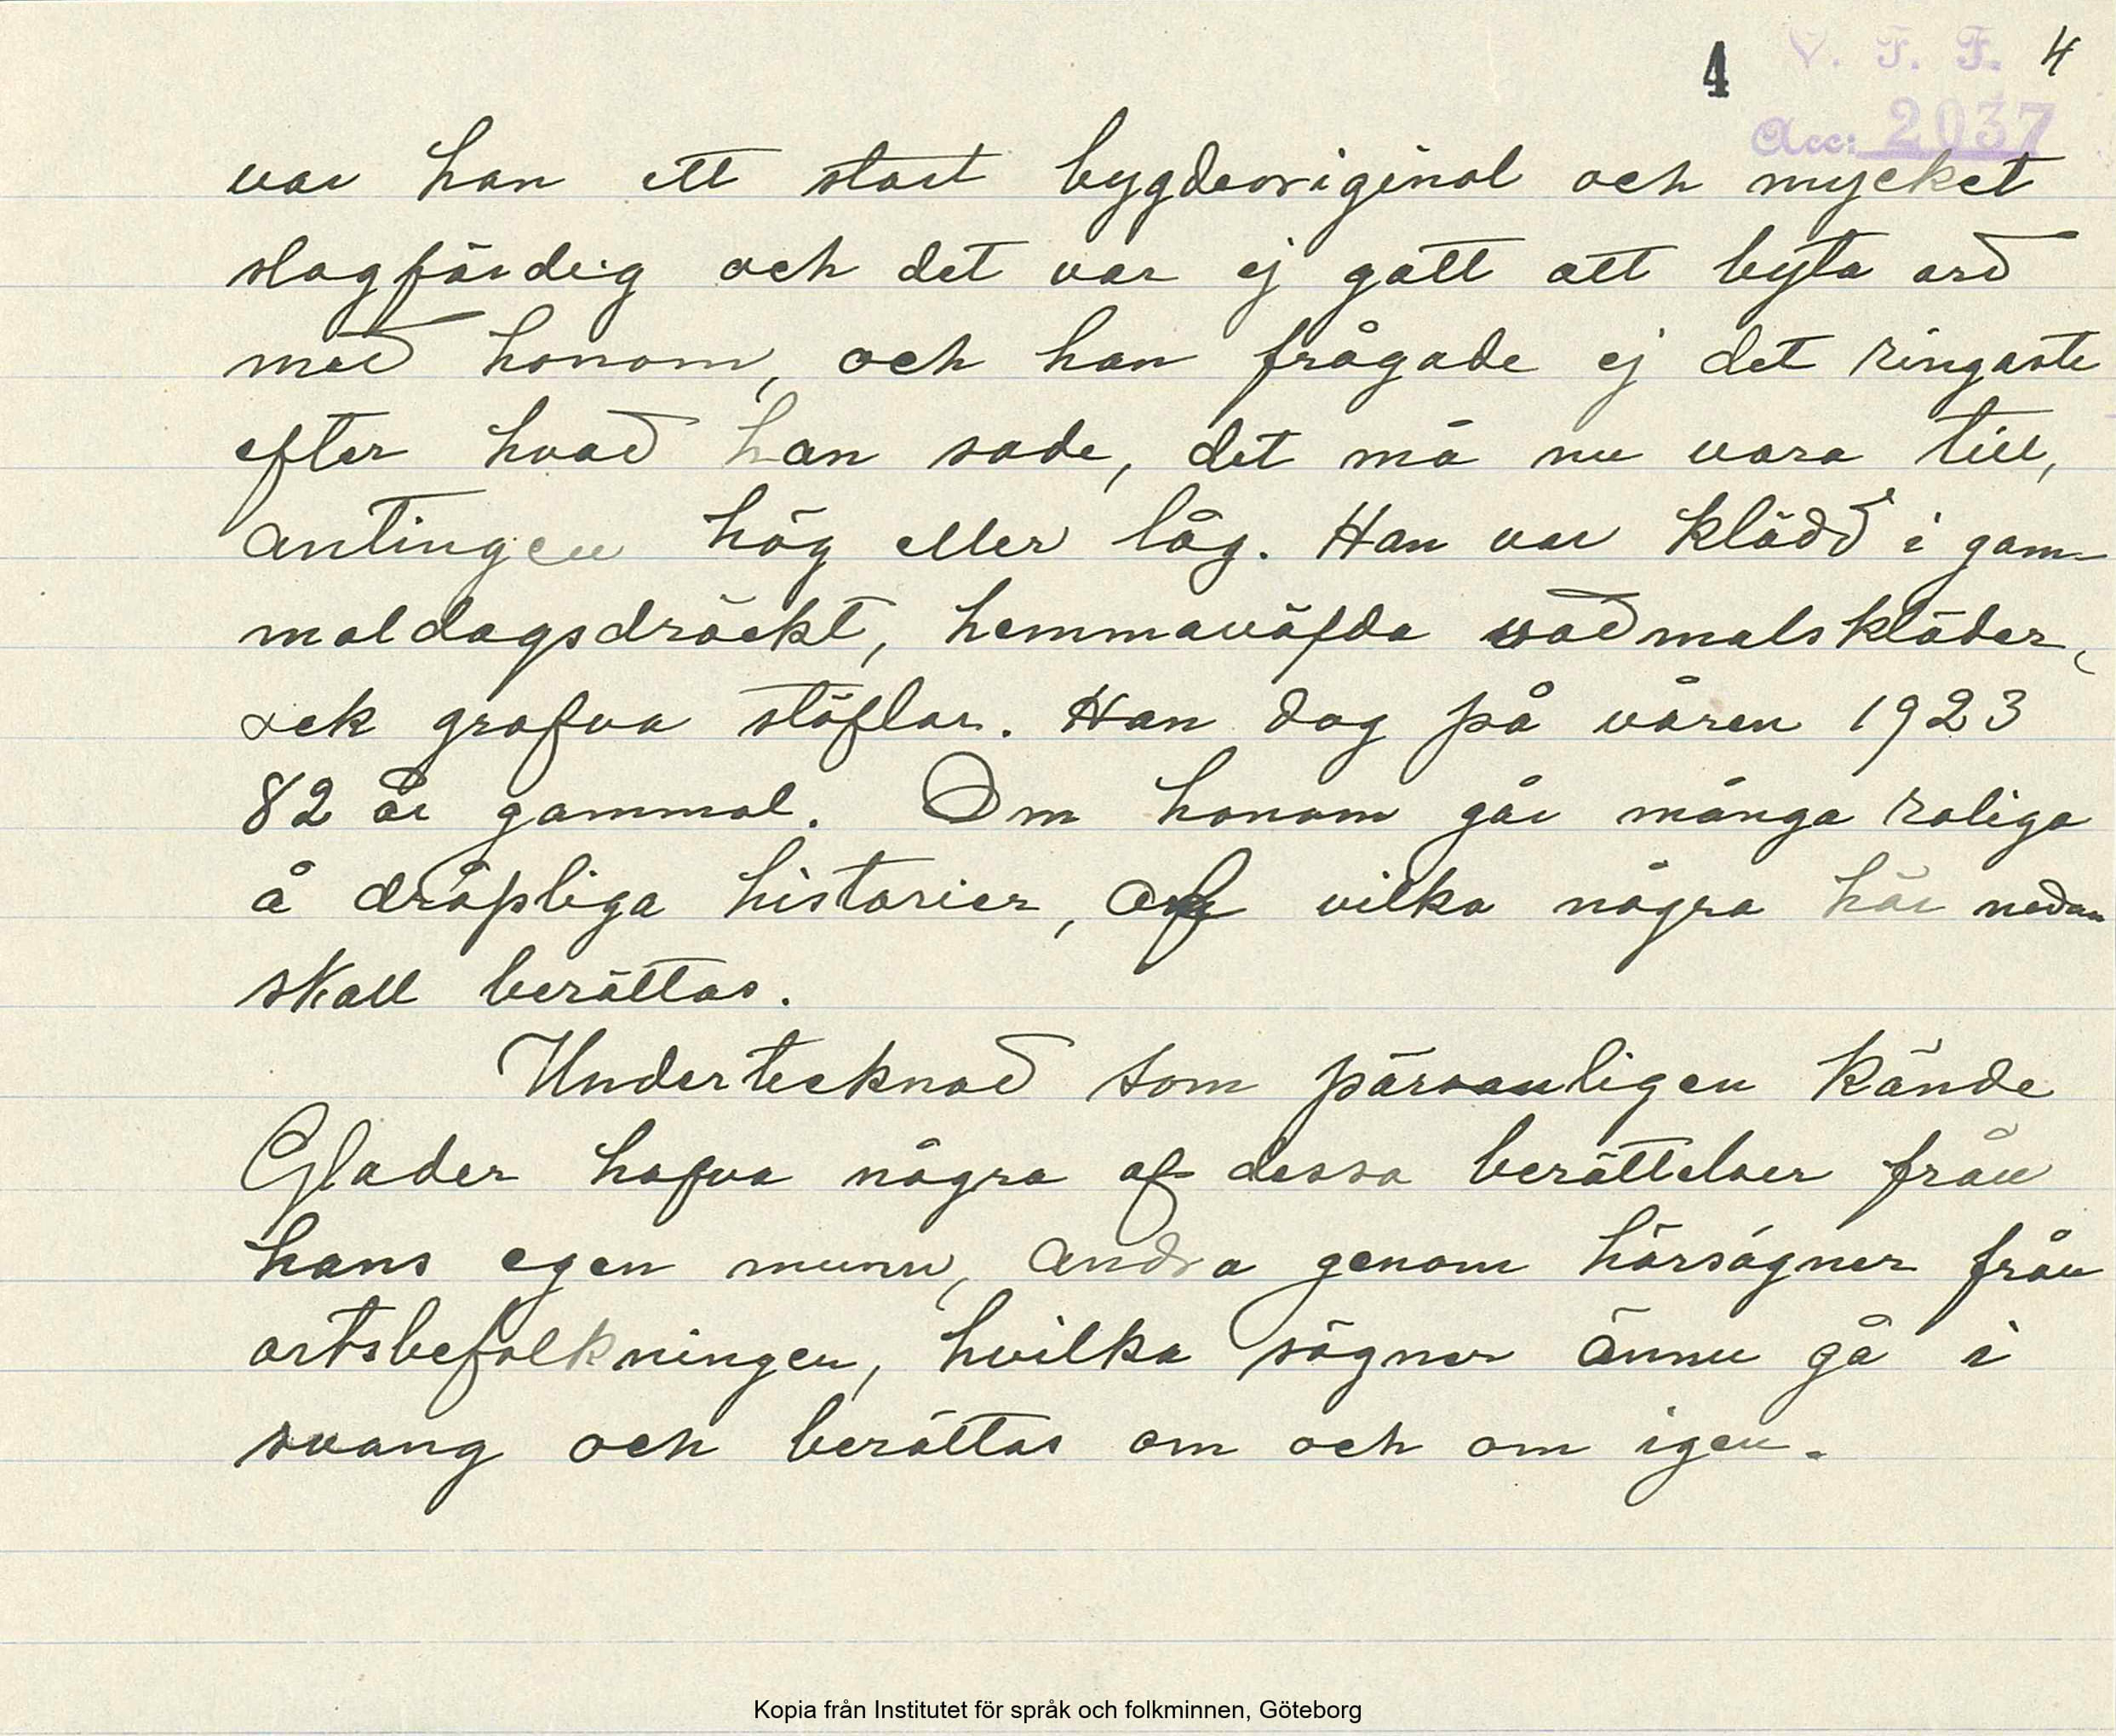 4 V. F. F. 4
Acc: 2037
var han ett stort bygdeoriginal och mycket
slagfärdig och det var ej gott att byta ord
med honom, och han frågade ej det ringaste
efter hvad han sade, det må nu vara till,
antingen hög eller låg. Han var klädd i gam-
maldagsdräckt, hemmaväfda vadmalskläder,
ock grofva stöflar. Han dog på våren 1923
82 år gammal. Om honom går många roliga
å dråpliga historier, af vilka några här nedan
skall berättas.
Undertecknad som pärsonligen kände
Glader hafva några af dessa berättelser från
hans egen munn, andra genom hörsägner från
ortsbefolkningen, hvilka sägner ännu gå i
svang och berättas om och om igen.
Kopia från Institutet för språk och folkminnen, Göteborg